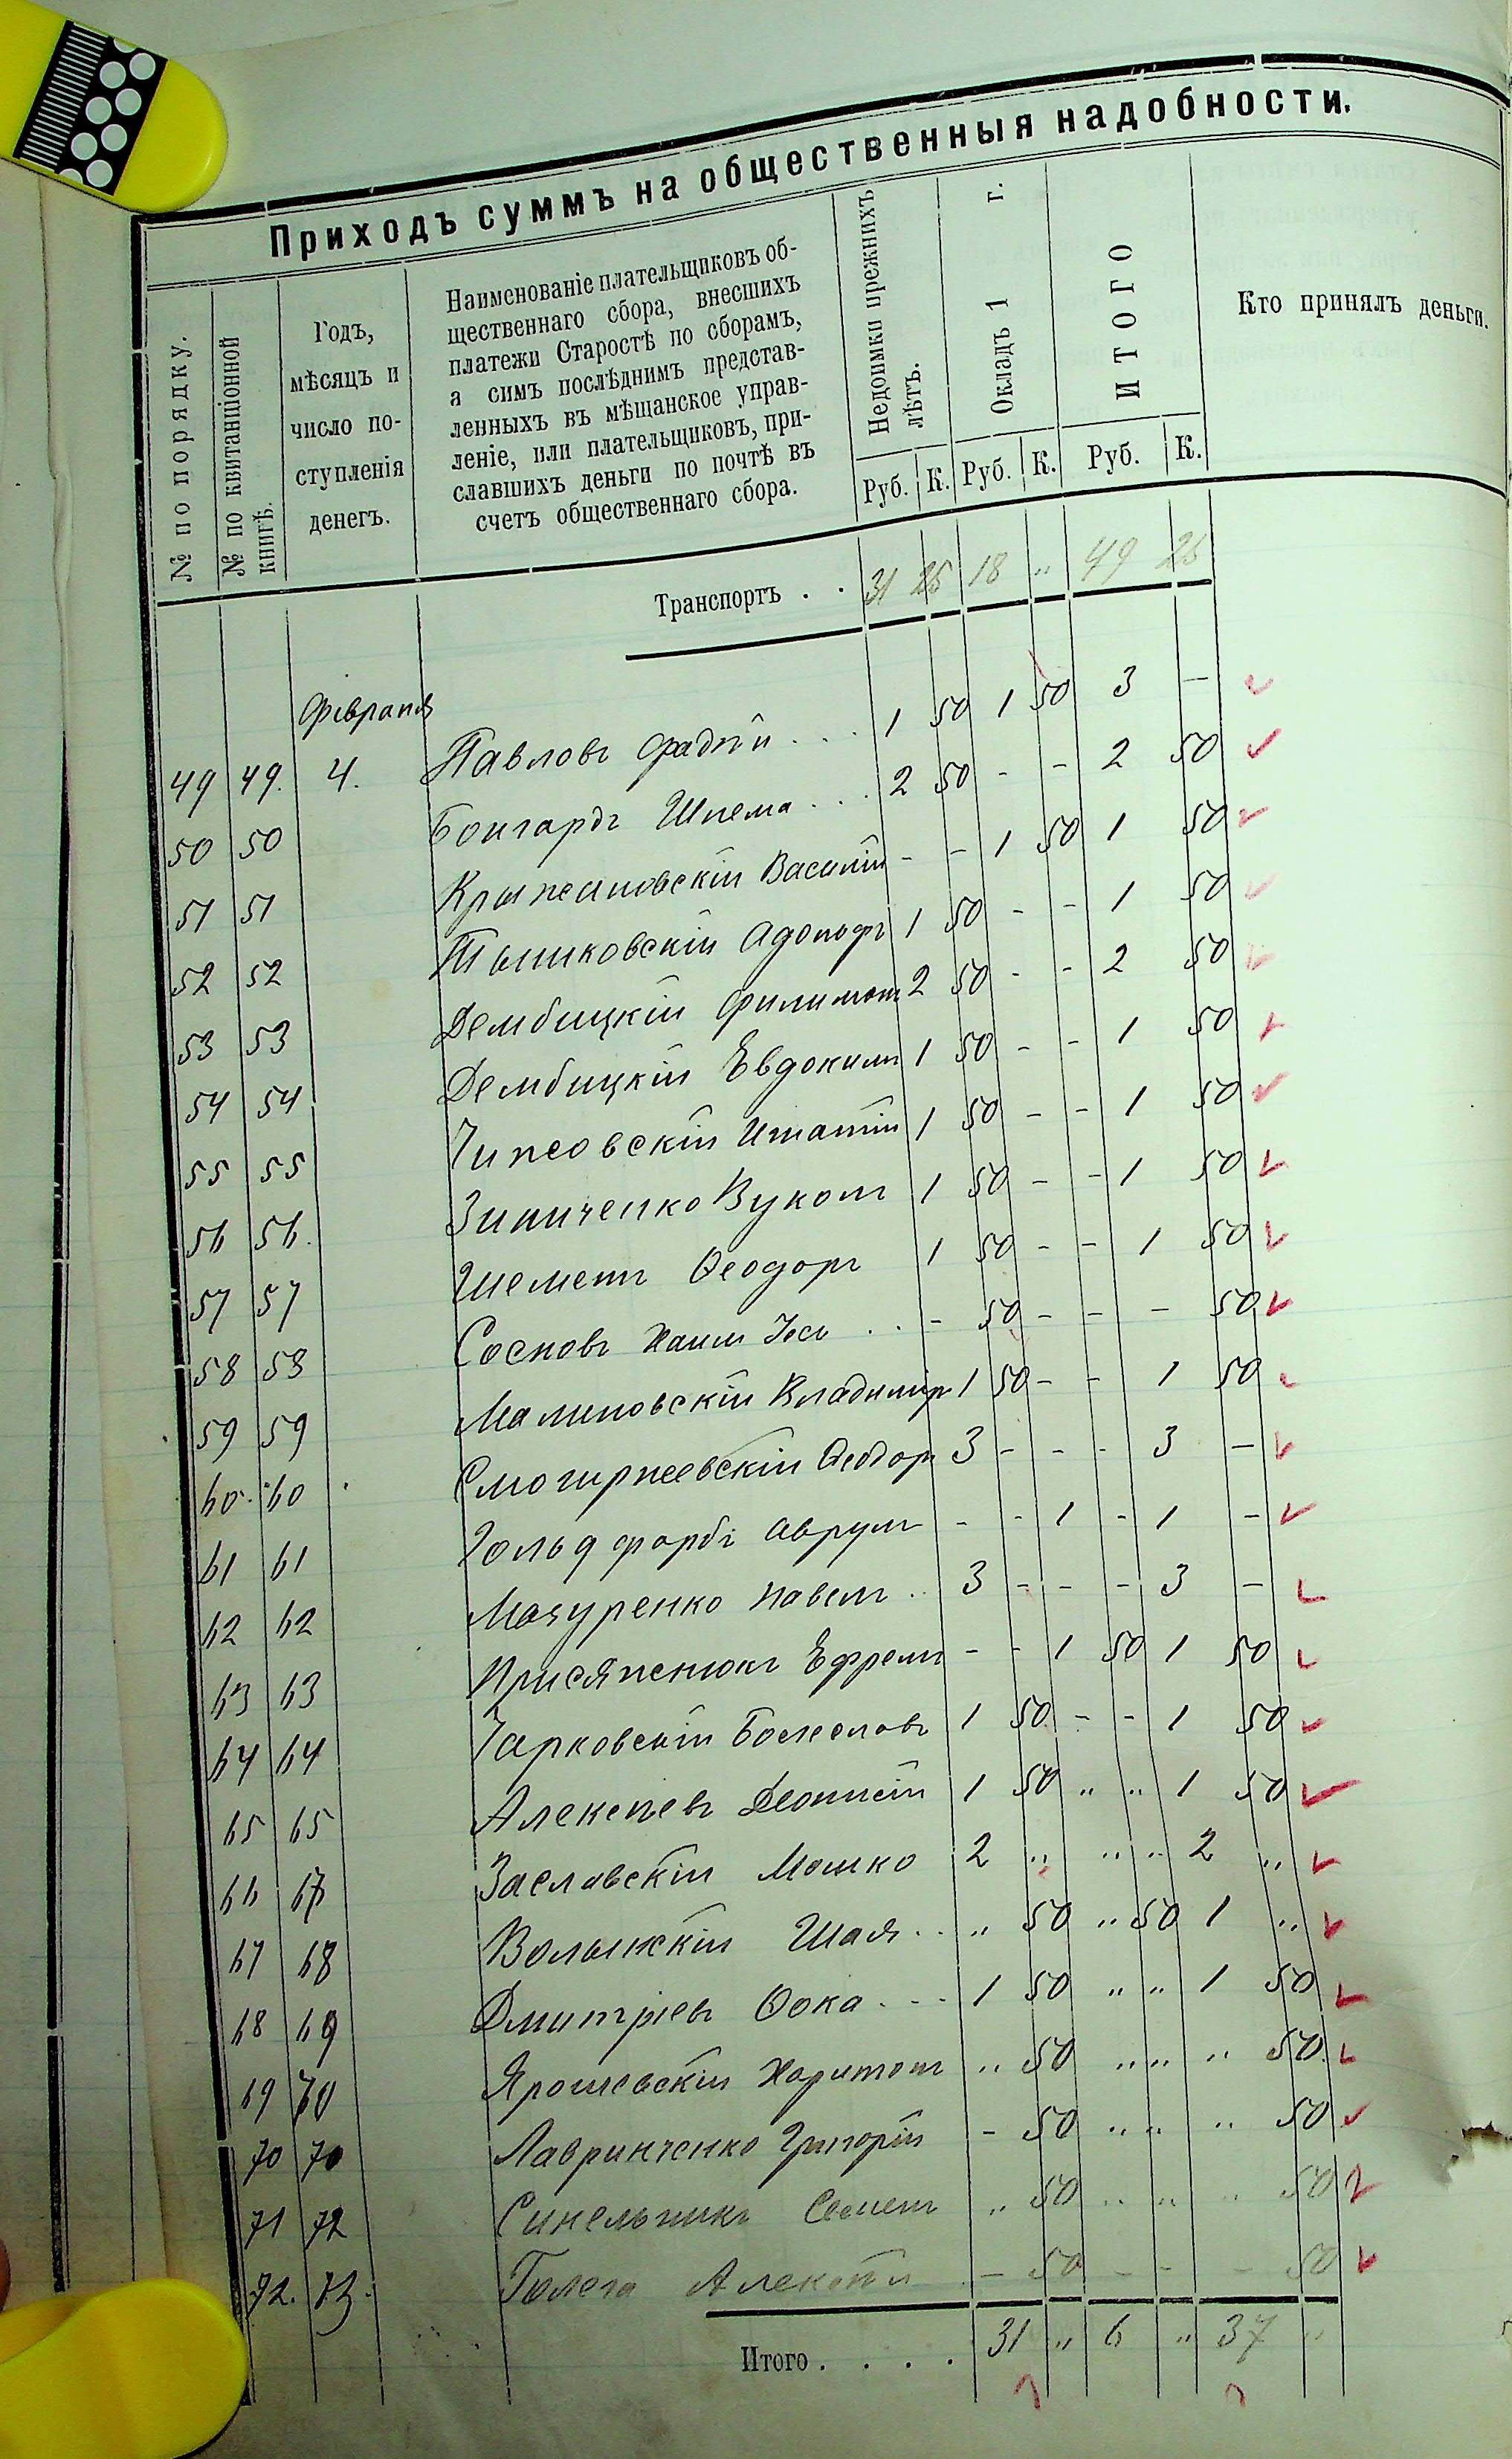 Приходъ суммъ на общественныя надобности.
№ по порядку.
№ по квитанціонной книгѣ.
Годъ,
мѣсяцъ и
число по-
ступленія
денегъ.
Наименованіе плательщиковъ об-
щественнаго сбора, внесшихъ
платежи Старостѣ по сборамъ,
а симъ послѣднимъ представ-
ленныхъ въ мѣщанское управ-
леніе, или плательщиковъ, при-
славшихъ деньги по почтѣ въ
счетъ общественнаго сбора.
Недоимки прежнихъ
лѣтъ.
Окладъ 1 г.
ИТОГО
Кто принялъ деньги.
Руб. К. Руб. К. Руб. К.
Транспортъ . . 31 25 18 " 49 25
Февраля
49 49. 4. Павловъ Фадѣй . . . 1 50 1 50 3 —
50 50 Бонгардъ Шлема . . . 2 50 - - 2 50
51 51 Крыжановскій Василій - - 1 50 1 50
52 52 Адольфъ 1 50 - - 1 50
53 53 Дембицкій Филимонъ 2 50 - - 2 50
54 54 Дембицкій Евдокимъ 1 50 - - 1 50
55 55 Игнатій 1 50 - - 1 50
56 56. Зинченко Вуколъ 1 50 - - 1 50
57 57 Шеметъ Ѳеодоръ 1 50 - - 1 50
58 58 Сосновъ Хаимъ . . - 50 - - - 50
59 59 Малиновскій Владиміръ 1 50 - - 1 50
60 60 Смогоржевскій Ѳеодоръ 3 - - - 3 —
61 61 Гольдфарбъ Аврумъ - - 1 - 1 -
62 62 Мазуренко Павелъ .. 3 - - - 3 —
63 63 Присяжнюкъ Ефремъ - - 1 50 1 50
64 64 Чарковскій Болеславъ 1 50 - - 1 50
65 65 Алексѣевъ Діонисій 1 50 " " 1 50
66 67 Заславскій Мошко 2 " " " 2 "
67 68 Волынскій Шая . . " 50 " 50 1 "
68 69 Дмитріевъ Ѳока . . . 1 50 " " 1 50
69 70 Ярошевскій Харитонъ " 50 " " " 50
70 70 Лавринченко Григорій - 50 " " " 50
71 72 Синельникъ Семенъ " 50 " " " 50
72. 73. Голега Алексѣй - 50 - - - 50
Итого . . . . 31 " 6 " 37 "